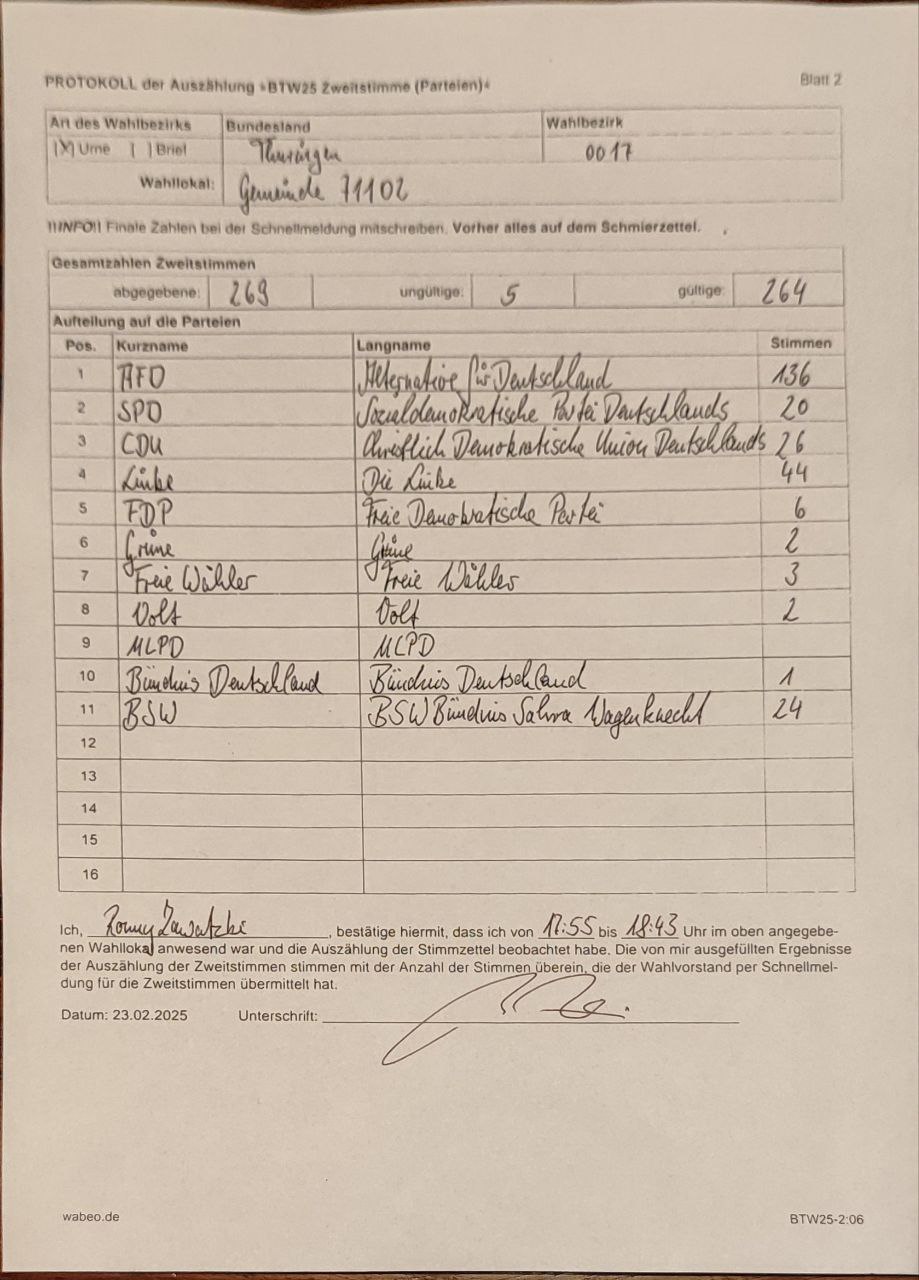 PROTOKOLL der Auszählung »BTW25 Zweitstimme (Parteien)« Blatt 2
Art des Wahlbezirks Bundesland Wahlbezirk
[X] Urne [ ] Brief Thüringen 0017
Wahllokal: Gemeinde 71102
!!INFO!! Finale Zahlen bei der Schnellmeldung mitschreiben. Vorher alles auf dem Schmierzettel.
Gesamtzahlen Zweitstimmen
abgegebene: 269 ungültige: 5 gültige: 264
Aufteilung auf die Parteien
Pos. Kurzname Langname Stimmen
1 AFD Alternative für Deutschland 136
2 SPD Sozialdemokratische Partei Deutschlands 20
3 CDU Christlich Demokratische Union Deutschlands 26
4 Linke Die Linke 44
5 FDP Freie Demokratische Partei 6
6 Grüne Grüne 2
7 Freie Wähler Freie Wähler 3
8 Volt Volt 2
9 MLPD MLPD
10 Bündnis Deutschland Bündnis Deutschland 1
11 BSW BSW Bündnis Sahra Wagenknecht 24
12
13
14
15
16
Ich, Ronny Zawatzki, bestätige hiermit, dass ich von 17:55 bis 18:43 Uhr im oben angegebe-
nen Wahllokal anwesend war und die Auszählung der Stimmzettel beobachtet habe. Die von mir ausgefüllten Ergebnisse
der Auszählung der Zweitstimmen stimmen mit der Anzahl der Stimmen überein, die der Wahlvorstand per Schnellmel-
dung für die Zweitstimmen übermittelt hat.
Datum: 23.02.2025 Unterschrift:
wabeo.de BTW25-2:06